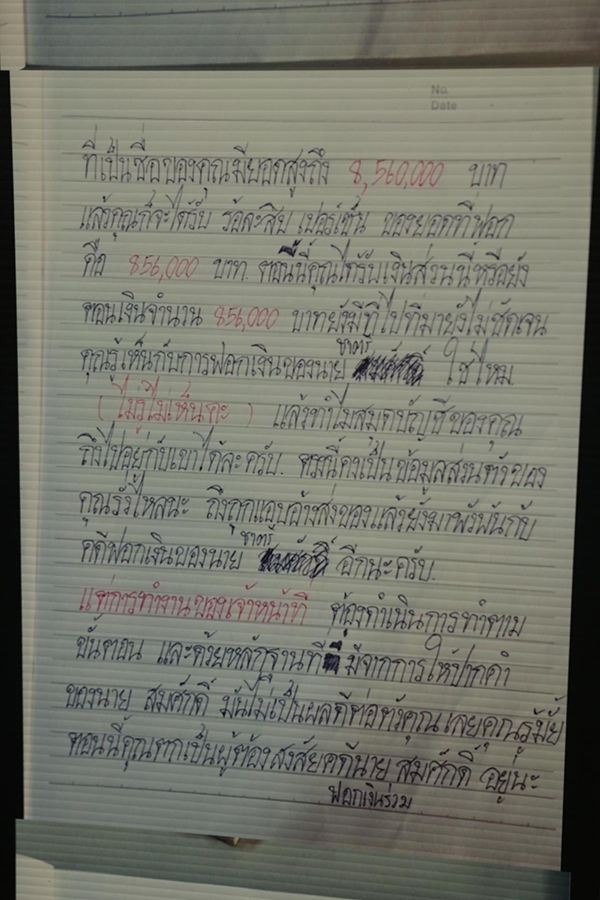 No.
Date
ที่เป็นชื่อของคุณมียอดสูงถึง 8,560,000 บาท
แล้วคุณก็จะได้รับ ร้อละสิบ เปอร์เซ็น ของยอดที่ฟอก
คือ 856,000 บาท ตอนนี้คุณได้รับเงินส่วนนี้หรือยัง
ตอนเงินจำนาน 856,000 บาทยังมีที่ไปที่มายังไม่ชัดเจน
ชาตรี
คุณรู้เห็นกับการฟอกเงินของนาย ใช่ไหม
(ไม่รู้ไม่เห็นคะ) แล้วทำไมสมุดบัญชีของคุณ
ถึงไปอยู่กับเขาได้ละครับ. ตรงนี้คงเป็นข้อมูลส่วนตัวของ
คุณรั่วไหลนะ ถึงถูกแอบอ้างส่งของแล้วยังมาพัวพันกับ
ชาตรี
คดีฟอกเงินของนาย อีกนะครับ.
แต่การทำงานของเจ้าหน้าที่ ต้องดำเนินการทำตาม
ขั้นตอน และด้วยหลักฐานที่ มีจากการให้ปากคำ
ของนาย สมศักดิ์ มันไม่เป็นผลดีต่อตัวคุณเลยคุณรู้มั้ย
ตอนนี้คุณตกเป็นผู้ต้องสงสัยคดีนาย สมศักดิ์ อยู่นะ
ฟอกเงินร่วม